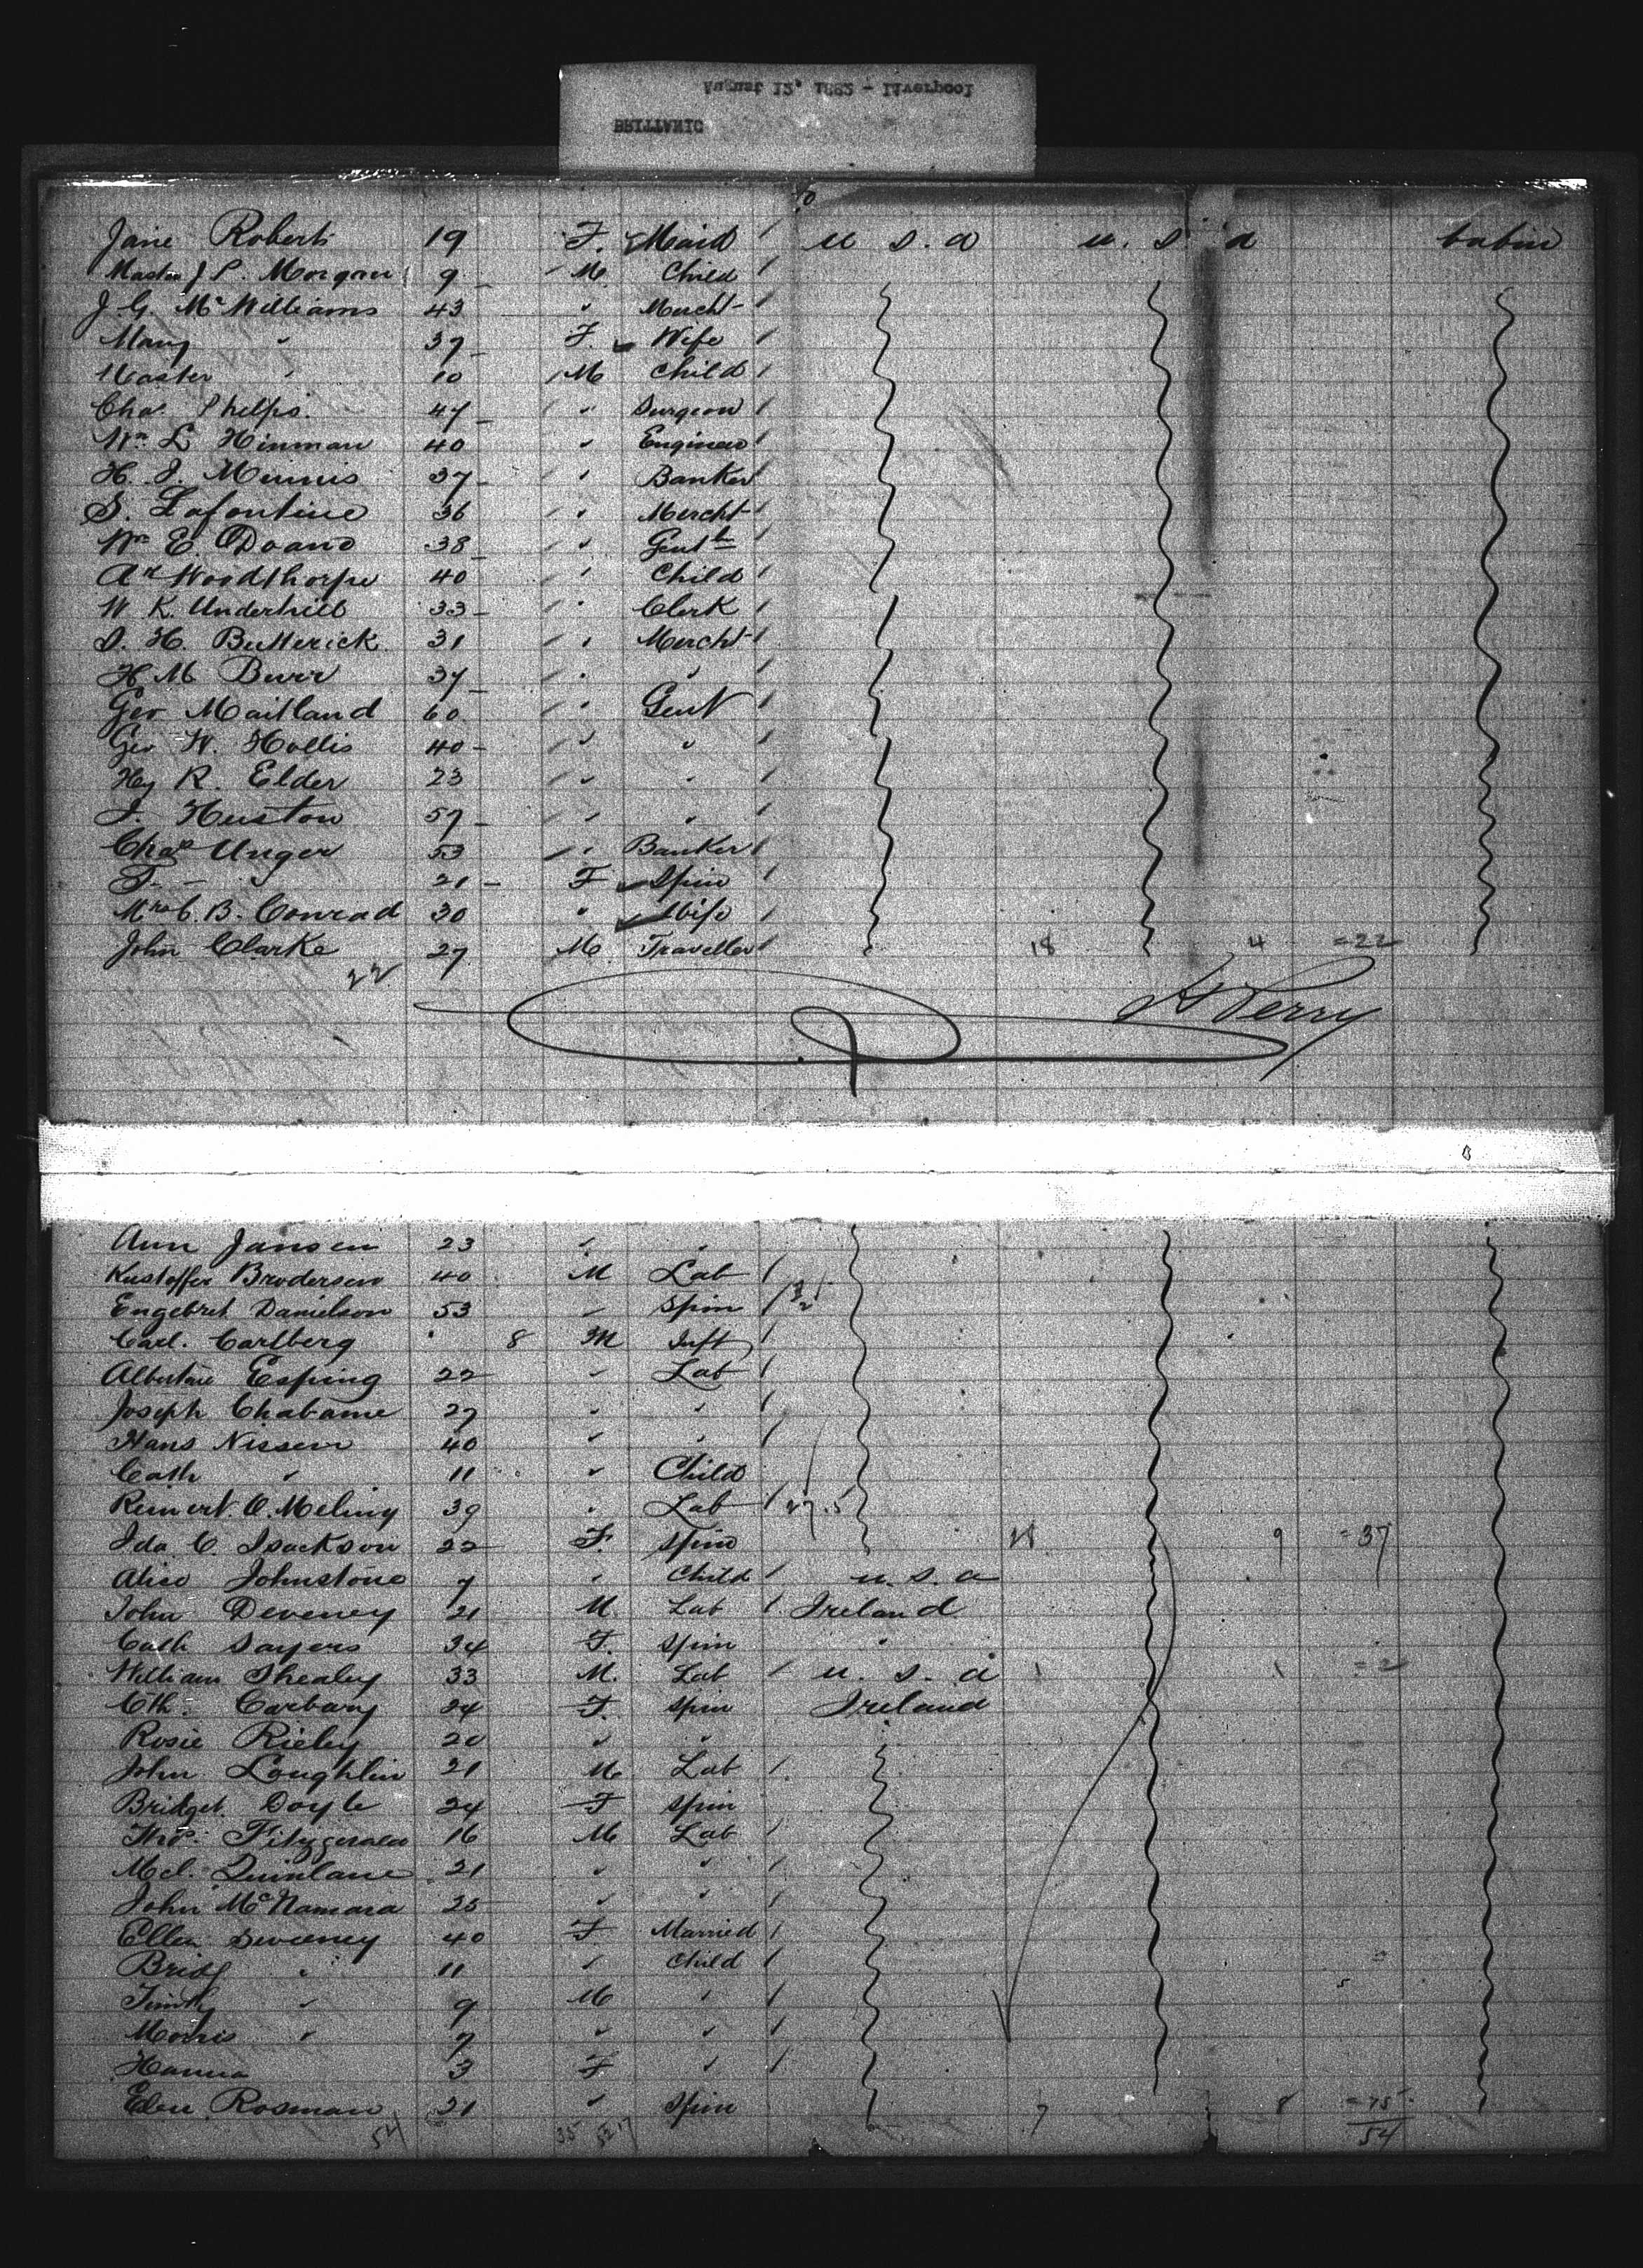 August 12, 1882 - Liverpool
BRITTANIC
Jane Roberts 19 F. Maid u s. a u. s a Cabin
Master J. P. Morgan 9 M. Child
J. G. McWilliams 43 " Mercht
Mary " 37 F. Wife
Master " 10 M Child
Chas. Phelps. 47 " Surgeon
Wm. L Hinman 40 " Engineer
H. J. Minnis 37 " Banker
S. Lafontine 36 " Mercht
Wm E. Doano 38 " Gent
Ad Woodthorpe 40 " Child
W K. Underhill 33 " Clerk
S. H. Butterick 31 " Mercht
H M Burr 37 " "
Geo Maitland 60 " Gent
Geo W. Hollis 40 " "
Hy R. Elder 23 " "
J. Huston 57 " "
Chas Unger 53 " Banker
F. " 21 F Spin
Mrs C. B. Conrad 30 " Wife
John Clarke 27 M. Traveller 18 4 =22
22
H Perry
Ann Jansen 23 " "
Kustoffer Brodersen 40 M Lab
Engebret Danielson 53 " Spin
Carl. Carlberg 8 M Inft
Albertine Esping 22 " Lab
Joseph Chabame 27 " "
Hans Nissen 40 " "
Cath " 11 " Child
Reinert. O. Meling 39 " Lab
Ida C. Isackson 22 F. Spin 9 =37
Alice Johnstone 7 " Child u. s. a
John Deveney 21 M. Lab Ireland
Cath Sayers 34 F. Spin "
William Shealy 33 M. Lab u. s. a =2
Cth. Carbary 24 F. Spin Ireland
Rosie Rieley 20 " "
John Loughlin 21 M Lab
Bridget Doyle 24 F Spin
Thos. Fitzgerald 16 M Lab
Mcl. Quinlane 21 " "
John McNamara 25 " "
Ellen Sweeney 40 F Married
Bridg " 11 " Child
Timthy " 9 M "
Morris " 7 " "
Hanna 3 F "
Ellen Rosman 21 " Spin 7 8 =15
54 54